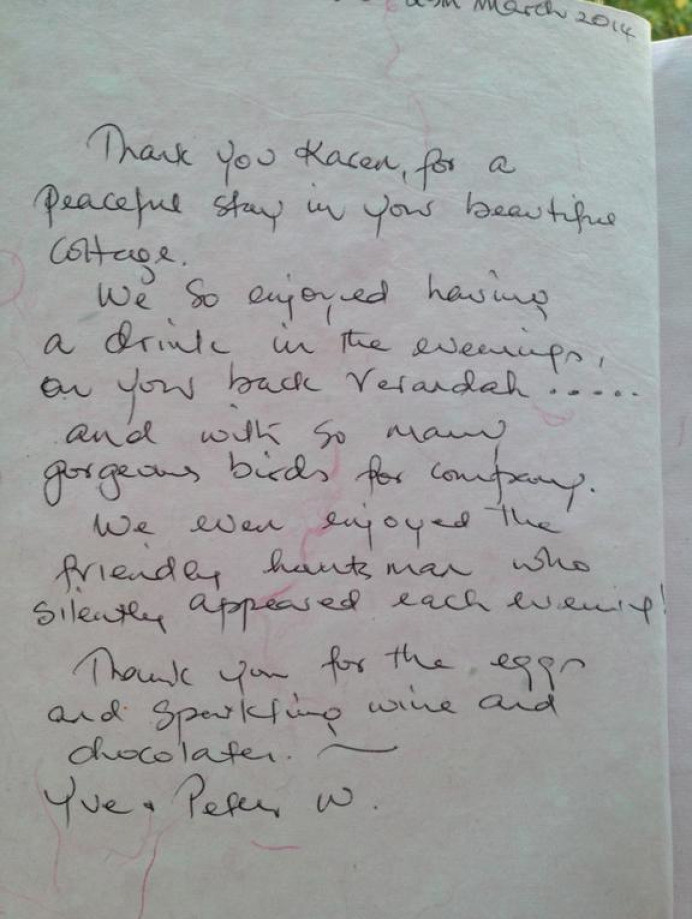 March 2014
Thank you Karen, for a
peaceful stay in your beautiful
cottage.
We so enjoyed having
a drink in the evenings,
on your back verandah .....
and with so many
gorgeous birds for company.
We even enjoyed the
friendly hunts man who
silently appeared each evening!
Thank you for the eggs
and sparkling wine and
chocolates.
Yve & Peter W.